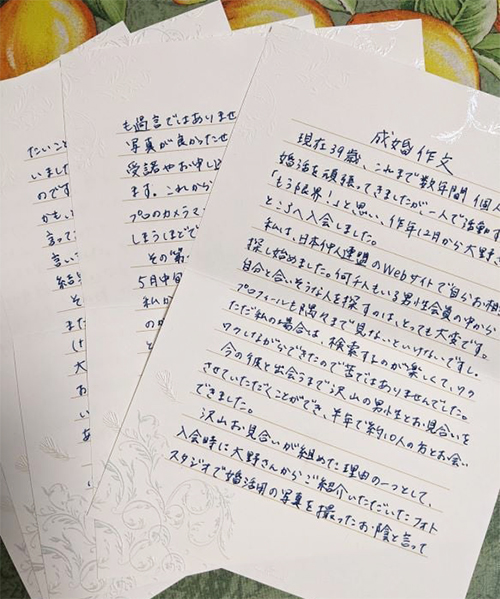 成婚作文
現在39歳、これまで数年間個人
婚活を頑張ってきましたが一人で活動す
「もう限界!」と思い、昨年12月から大野さ
ところへ入会しました。
私は、日本仲人連盟のWebサイトで自らお相
探し始めました。何千人もいる男性会員の中から
自分と合いそうな人を探すのは、とっても大変です。
プロフィールも隅々まで見ないといけないですし。
ただ私の場合は、検索するのが楽しくて、ワク
ワクしながらできたので苦ではありませんでした。
今の彼と出会うまで沢山の男性とお見合いを
させていただくことができ、半年で約10人の方とお会い
できました。
沢山お見合いが組めた理由の一つとして、
入会時に大野さんからご紹介いただいたフォト
スタジオで婚活用の写真を撮ったお陰と言って
も過言ではありませ
写真が良かったせ
受諾やお申し込
ます。これから
プロのカメラマ
しまうほどで
その第
5月中旬
私が
のか
と
たいこと
いました
のです
かも、
言って
言い
結
そ
また
し
大
お
い
あ